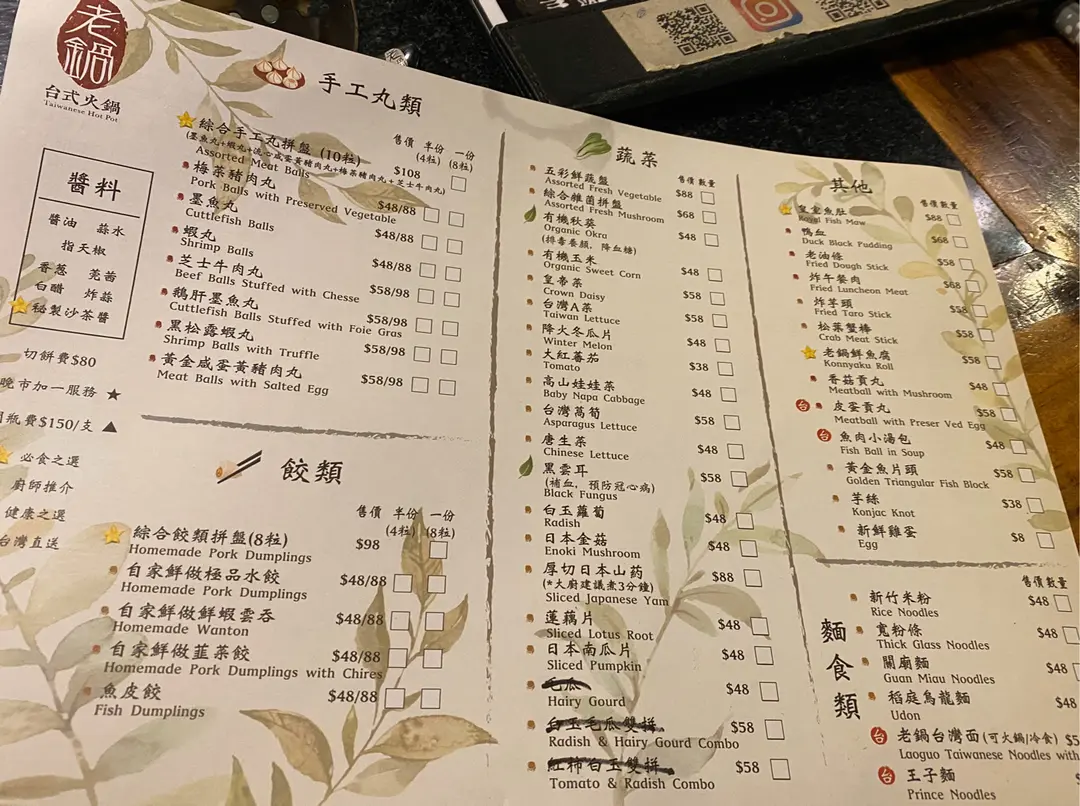 老鍋
台式火鍋
Taiwanese Hot Pot
醬料
醬油 蒜水
指天椒
香蔥 芫茜
白醋 炸蒜
秘製沙茶醬
切餅費$80
晚市加一服務 ★
瓶費$150/支 ▲
必食之選
廚師推介
健康之選
台灣直送
手工丸類
售價 半份 一份
(4粒) (8粒)
綜合手工丸拼盤 (10粒) $108
(墨魚丸+蝦丸+流心咸蛋黃豬肉丸+梅菜豬肉丸+芝士牛肉丸)
Assorted Meat Balls
梅菜豬肉丸 $48/88
Pork Balls with Preserved Vegetable
墨魚丸 $48/88
Cuttlefish Balls
蝦丸 $48/88
Shrimp Balls
芝士牛肉丸 $58/98
Beef Balls Stuffed with Chesse
鵝肝墨魚丸 $58/98
Cuttlefish Balls Stuffed with Foie Gras
黑松露蝦丸 $58/98
Shrimp Balls with Truffle
黃金咸蛋黃豬肉丸 $58/98
Meat Balls with Salted Egg
餃類
售價 半份 一份
(4粒) (8粒)
綜合餃類拼盤(8粒) $98
Homemade Pork Dumplings
自家鮮做極品水餃 $48/88
Homemade Pork Dumplings
自家鮮做鮮蝦雲吞 $48/88
Homemade Wanton
自家鮮做韮菜餃 $48/88
Homemade Pork Dumplings with Chires
魚皮餃 $48/88
Fish Dumplings
蔬菜
售價 數量
五彩鮮蔬盤 $88
Assorted Fresh Vegetable
綜合雜菌拼盤 $68
Assorted Fresh Mushroom
有機秋葵 $48
Organic Okra
(排毒養顏, 降血糖)
有機玉米 $48
Organic Sweet Corn
皇帝菜 $58
Crown Daisy
台灣A菜 $58
Taiwan Lettuce
降火冬瓜片 $48
Winter Melon
大紅蕃茄 $38
Tomato
高山娃娃菜 $48
Baby Napa Cabbage
台灣萵筍 $58
Asparagus Lettuce
唐生菜 $48
Chinese Lettuce
黑雲耳 $58
(補血, 預防冠心病)
Black Fungus
白玉蘿蔔 $48
Radish
日本金菇 $48
Enoki Mushroom
厚切日本山药 $88
(*大廚建議煮3分鐘)
Sliced Japanese Yam
蓮藕片 $48
Sliced Lotus Root
日本南瓜片 $48
Sliced Pumpkin
毛瓜 $48
Hairy Gourd
白玉毛瓜雙拼 $58
Radish & Hairy Gourd Combo
紅柿白玉雙拼 $58
Tomato & Radish Combo
其他
售價 數量
皇室魚肚 $88
Royal Fish Maw
鴨血 $68
Duck Black Pudding
老油條 $58
Fried Dough Stick
炸午餐肉 $68
Fried Luncheon Meat
炸芋頭 $58
Fried Taro Stick
松葉蟹棒 $58
Crab Meat Stick
老鍋鮮魚腐 $58
Konnyaku Roll
香菇貢丸 $48
Meatball with Mushroom
皮蛋貢丸 $58
Meatball with Preser Ved Egg
魚肉小湯包 $48
Fish Ball in Soup
黃金魚片頭 $58
Golden Triangular Fish Block
芋絲 $38
Konjac Knot
新鮮雞蛋 $8
Egg
麵食類
售價 數量
新竹米粉 $48
Rice Noodles
寬粉條 $48
Thick Glass Noodles
關廟麵 $48
Guan Miau Noodles
稻庭烏龍麵 $48
Udon
老鍋台灣面(可火鍋/冷食)
Laoguo Taiwanese Noodles with
王子麵
Prince Noodles